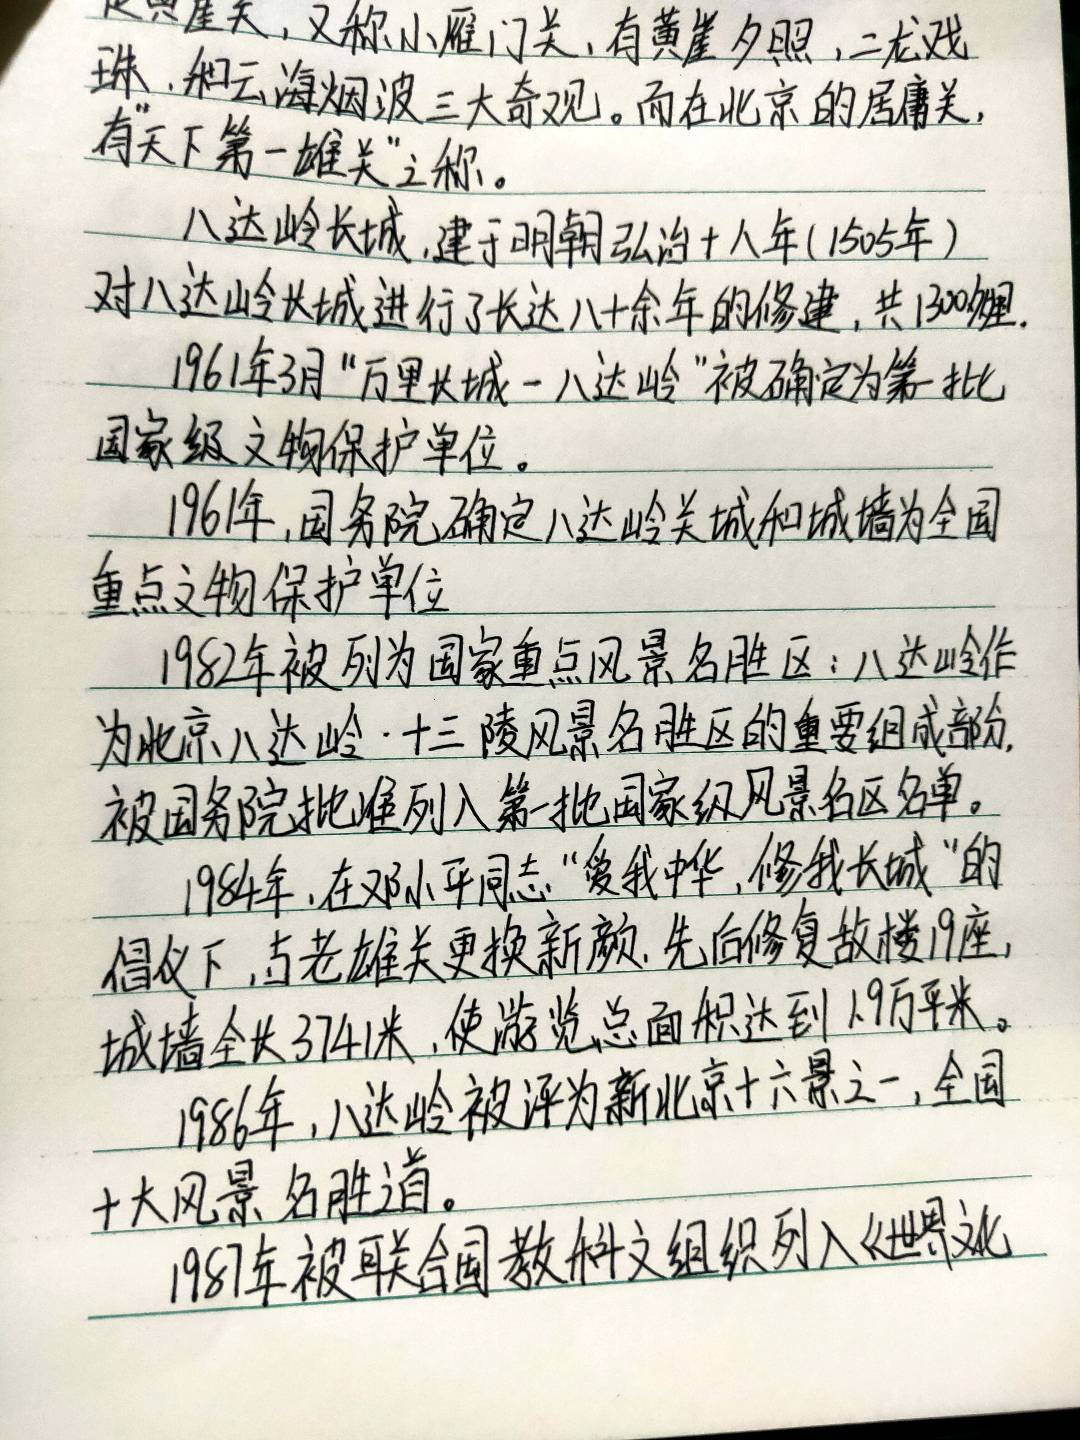 是黄崖关，又称小雁门关，有黄崖夕照，二龙戏
珠，和云海烟波三大奇观。而在北京的居庸关，
有"天下第一雄关"之称。
八达岭长城，建于明朝弘治十八年(1505年)
对八达岭长城进行了长达八十余年的修建，共1300多里。
1961年3月"万里长城-八达岭"被确定为第一批
国家级文物保护单位。
1961年，国务院确定八达岭关城和城墙为全国
重点文物保护单位
1982年被列为国家重点风景名胜区：八达岭作
为北京八达岭·十三陵风景名胜区的重要组成部分，
被国务院批准列入第一批国家级风景名区名单。
1984年，在邓小平同志"爱我中华，修我长城"的
倡议下，古老雄关更换新颜，先后修复敌楼19座，
城墙全长3741米，使游览总面积达到1.9万平米。
1986年，八达岭被评为新北京十六景之一，全国
十大风景名胜之首。
1987年被联合国教科文组织列入《世界文化